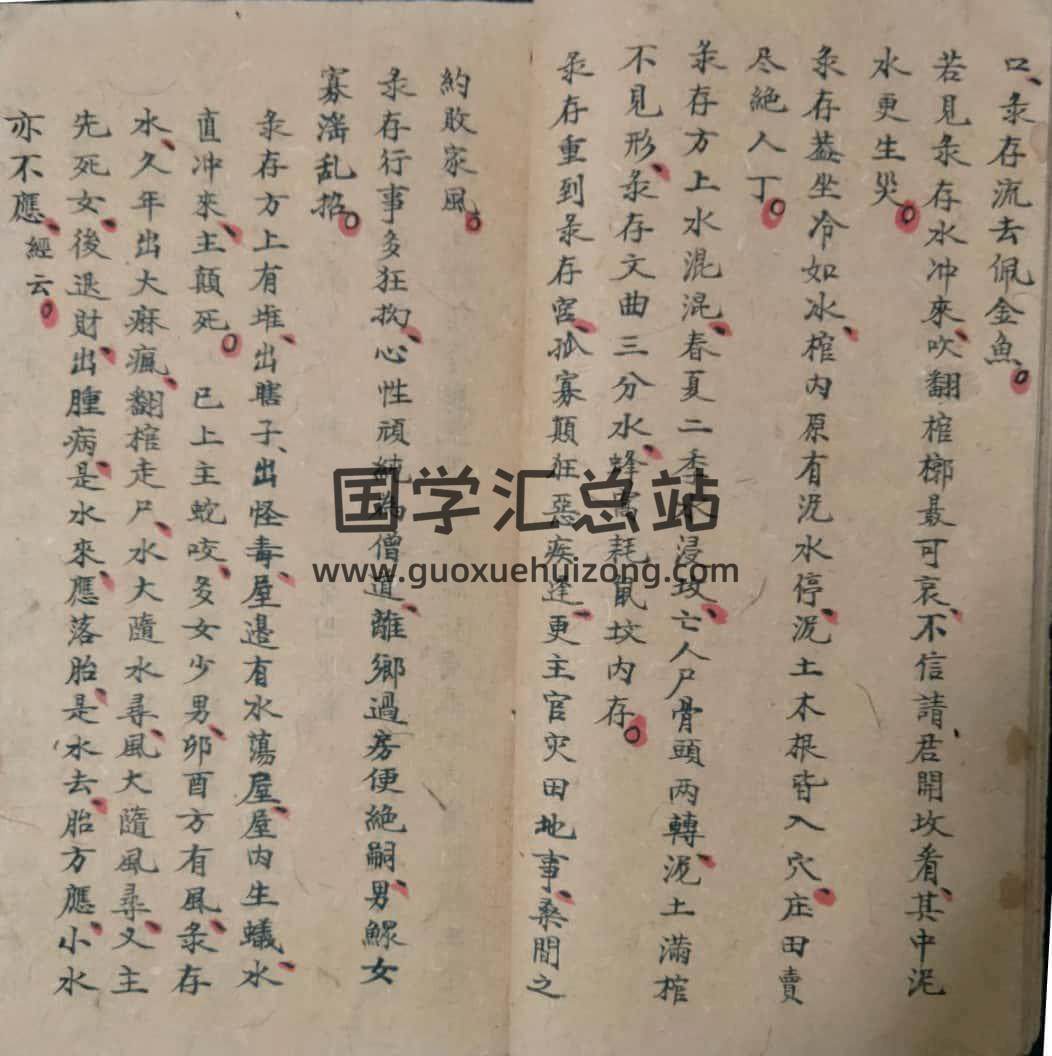 口、彔存流去佩金魚。
若見彔存水冲來、吹翻棺槨最可哀、不信請、君開坟看、其中泥
水更生災。
彔存葢坐冷如冰、棺内原有況水停、況土木根皆入穴、庄田賣
尽絶人丁。
彔存方上水混混、春夏二季木浸坟、亡人尸骨頭两轉、況土满棺
不見形、彔存文曲三分水、蜂窩耗鼠坟内存。
彔存重到彔存宫、孤寡顛狂惡疾逢、更主官灾田地事、桑間之
約敗家風。
彔存行事多狂抝、心性頑純為僧道、離郷過房便絶嗣、男鰥女
寡滛乱招。
彔存方上有堆、出瞎子、出怪毒、屋邉有水蕩屋、屋内生蟻、水
直冲來、主顛死。已上主蛇咬、多女少男、卯酉方有風、彔存
水、久年出大麻瘋、翻棺走尸、水大隨水尋、風大隨風尋、又主
先死女、後退財、出腫病、是水來、應落胎、是水去、胎方應、小水
亦不應、經云。
国学汇总站
www.guoxuehuizong.com